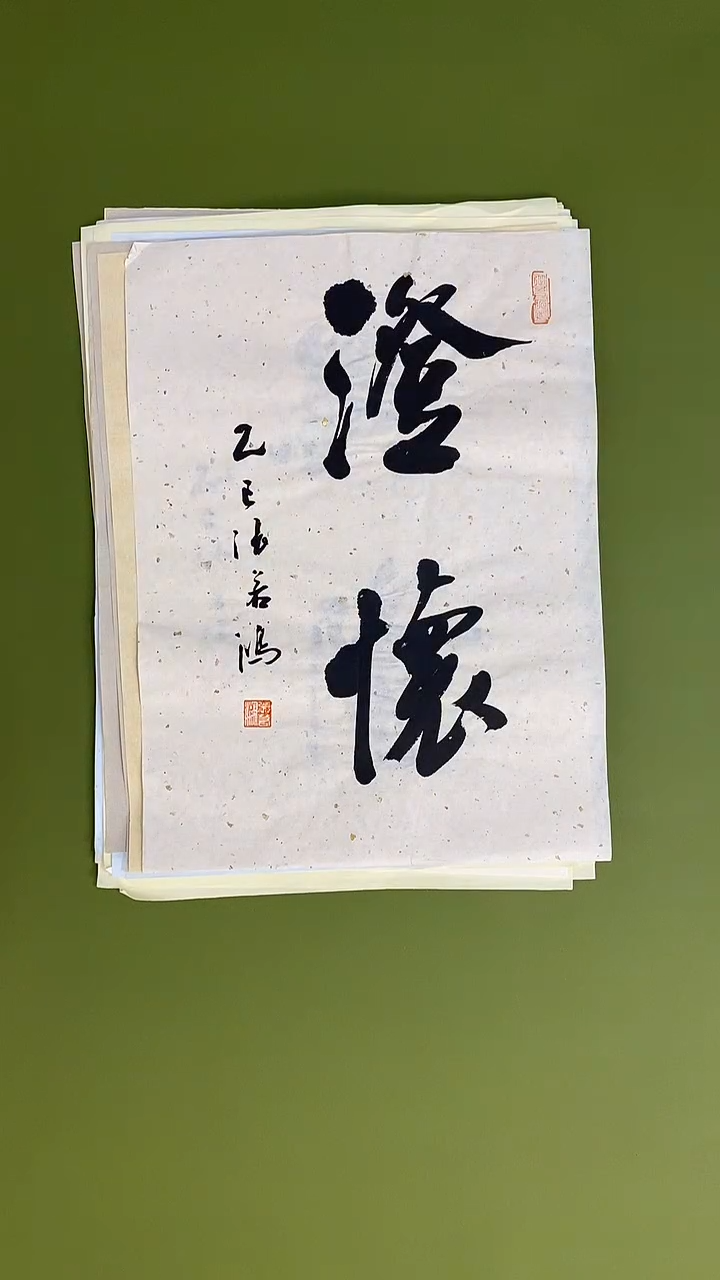 澄懷
乙巳 若鴻